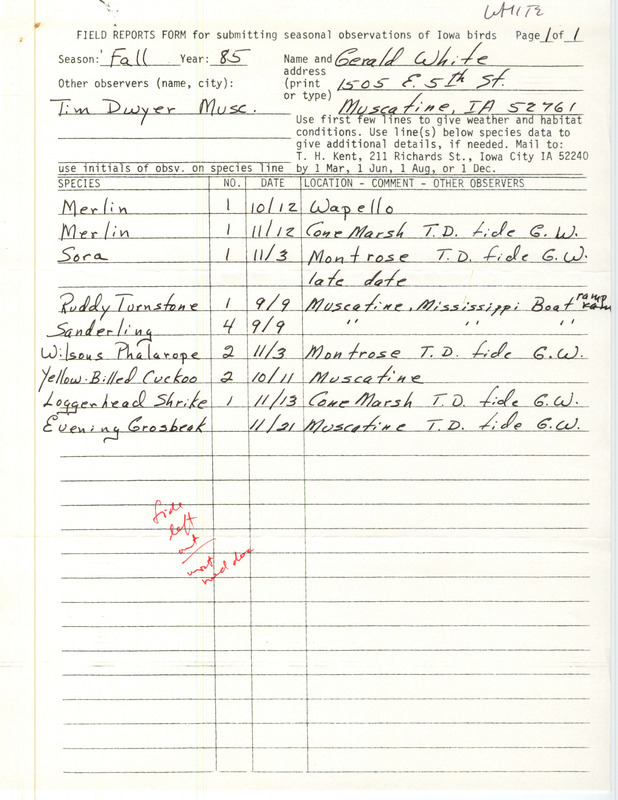 WHITE
FIELD REPORTS FORM for submitting seasonal observations of Iowa birds Page 1 of 1
Season: Fall Year: 85 Name and Gerald White
address
Other observers (name, city): (print 1505 E. 5th St.
or type)
Tim Dwyer Musc. Muscatine, IA 52761
Use first few lines to give weather and habitat
conditions. Use line(s) below species data to
give additional details, if needed. Mail to:
T. H. Kent, 211 Richards St., Iowa City IA 52240
use initials of obsv. on species line by 1 Mar, 1 Jun, 1 Aug, or 1 Dec.
SPECIES NO. DATE LOCATION - COMMENT - OTHER OBSERVERS
Merlin 1 10/12 Wapello
Merlin 1 11/12 Cone Marsh T.D. fide G.W.
Sora 1 11/3 Montrose T.D. fide G.W.
late date
Ruddy Turnstone 1 9/9 Muscatine, Mississippi Boat ramp
Sanderling 4 9/9 " " "
Wilsons Phalarope 2 11/3 Montrose T.D. fide G.W.
Yellow-Billed Cuckoo 2 10/11 Muscatine
Loggerhead Shrike 1 11/13 Cone Marsh T.D. fide G.W.
Evening Grosbeak 11/21 Muscatine T.D. fide G.W.
fide
left
out/
most
need doc